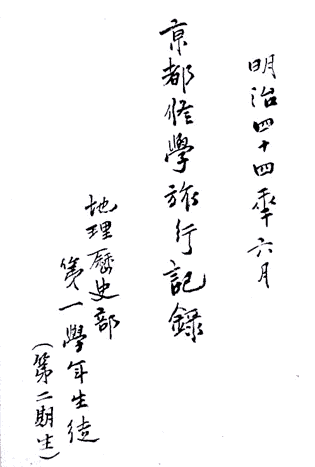 明治四十四年六月
京都修學旅行記錄
地理歷史部
第一學年生徒
（第二期生）